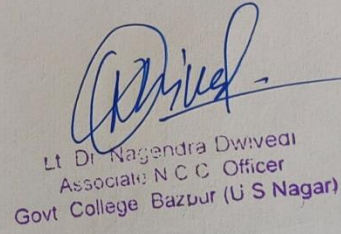 Dwivedi
Lt Dr Nagendra Dwivedi
Associate N C C Officer
Govt College Bazpur (U S Nagar)